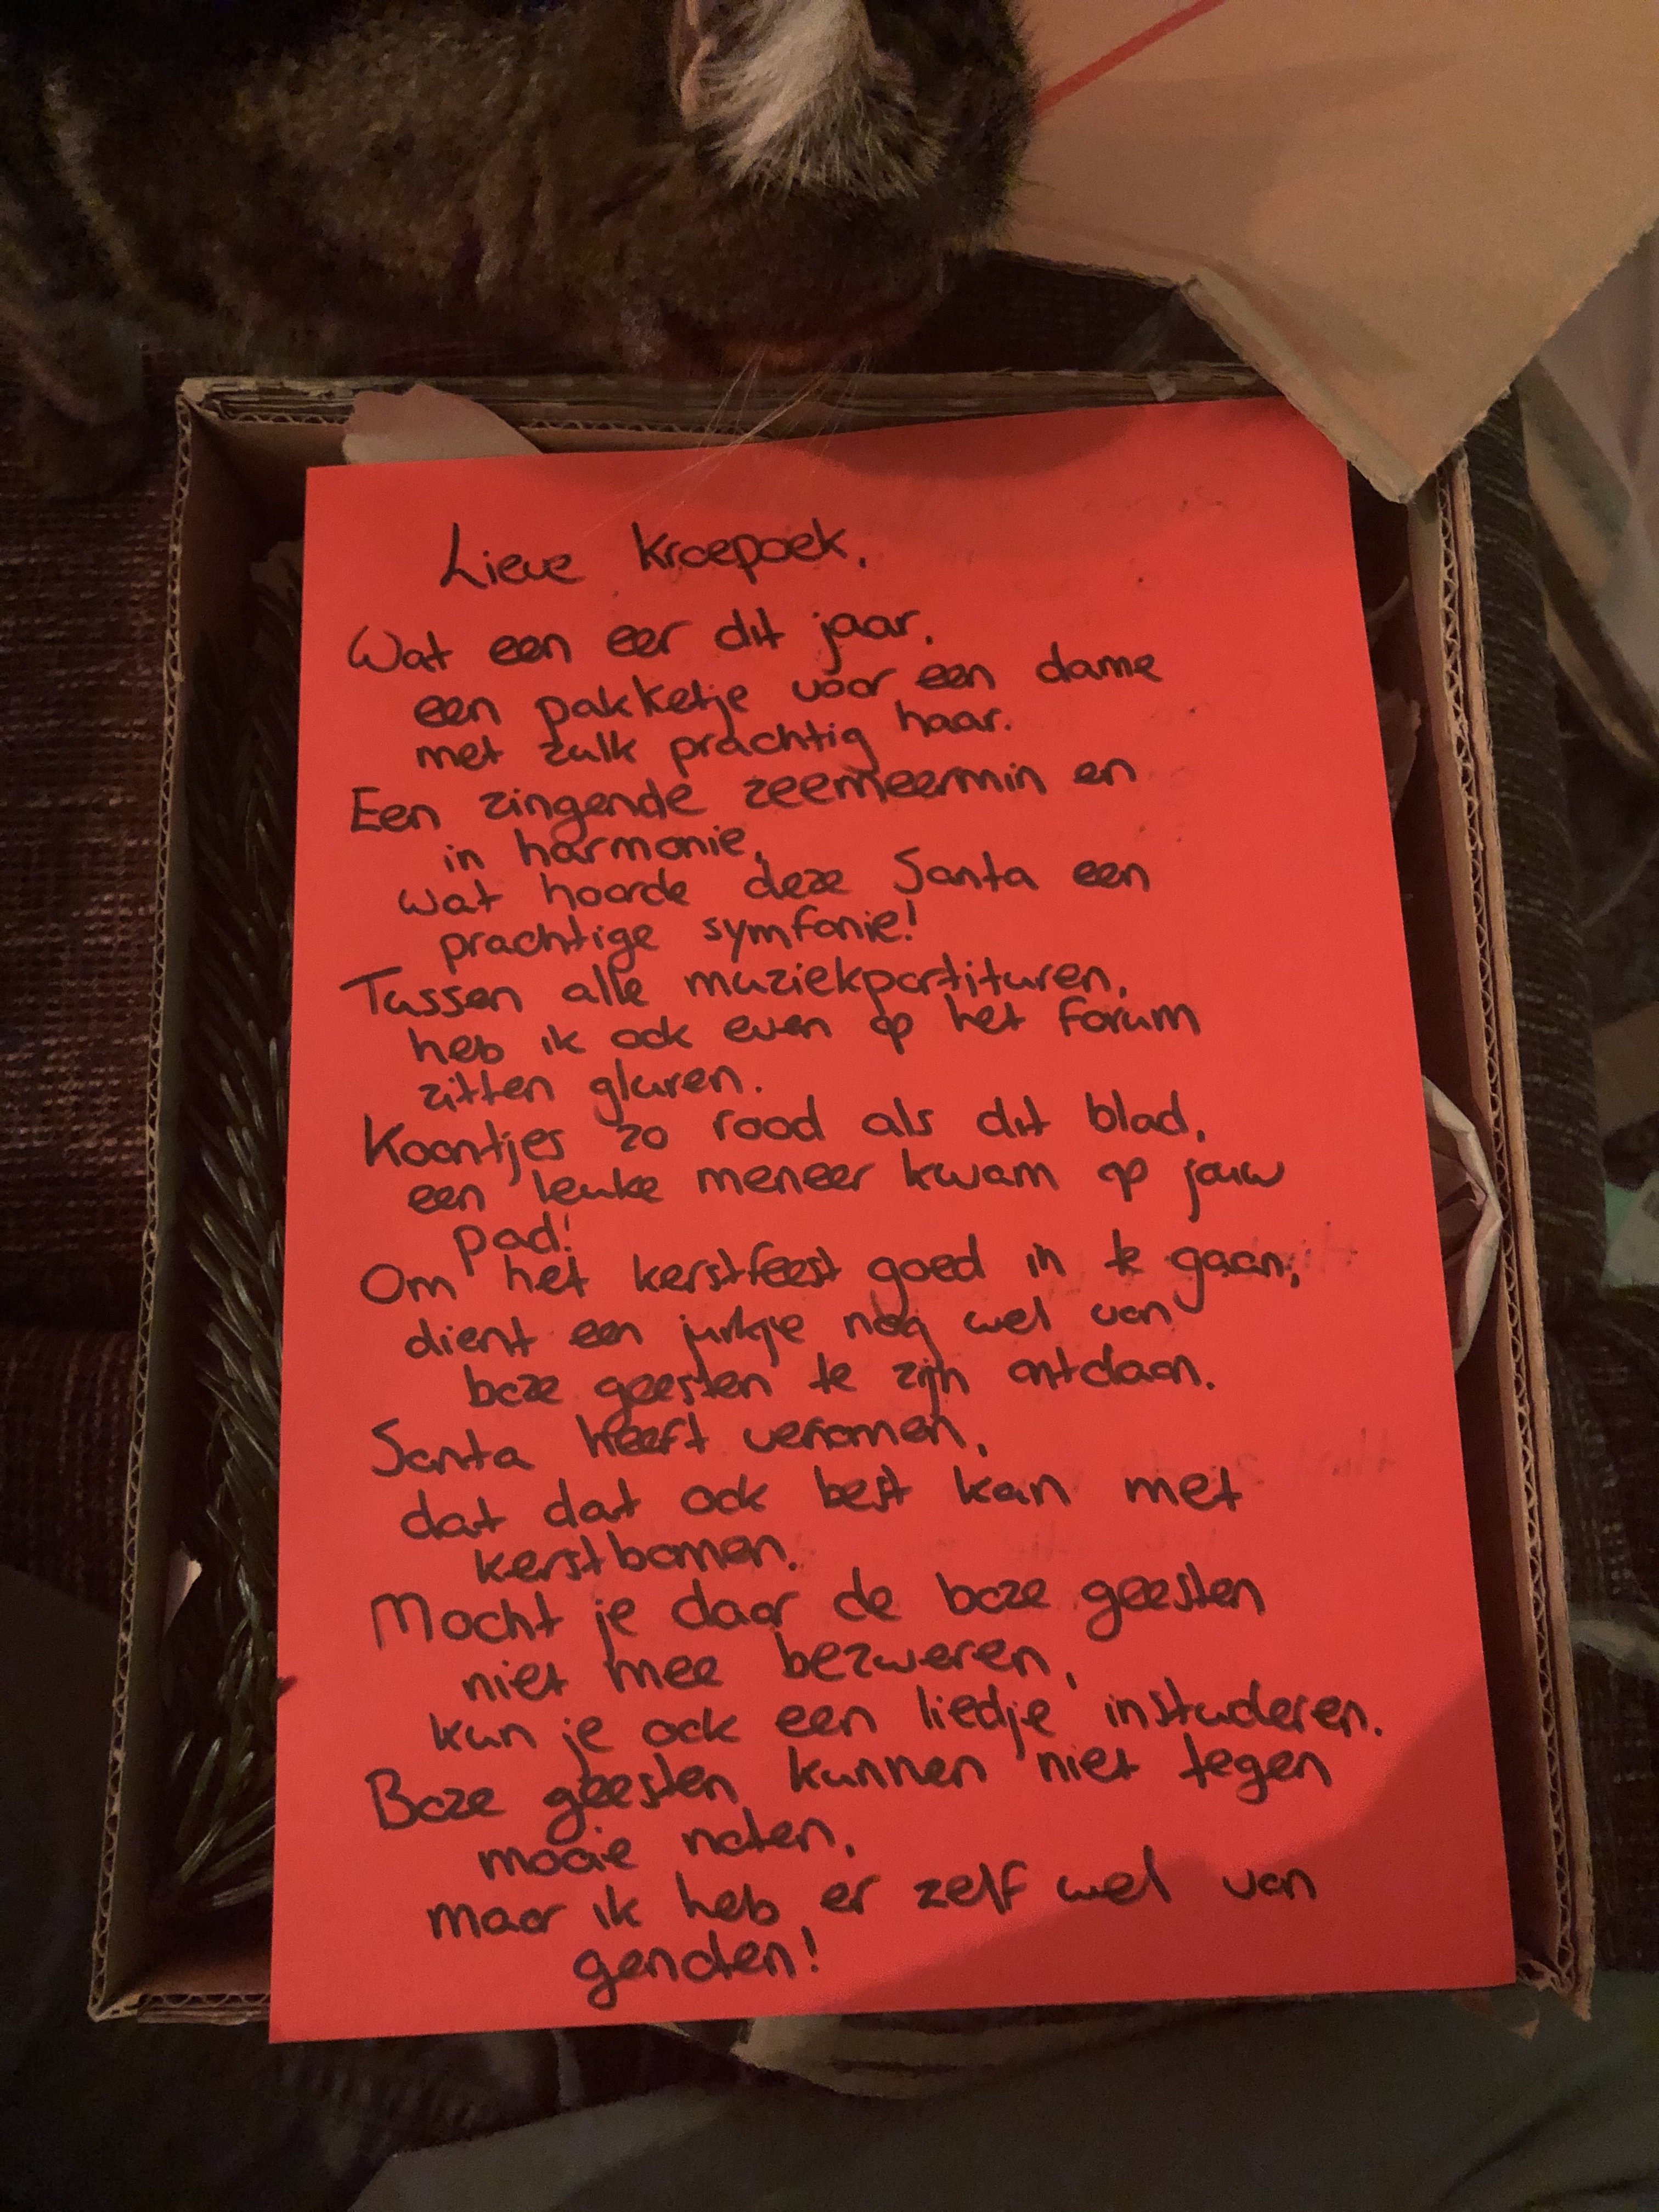 Lieve Kroepoek,
Wat een eer dit jaar,
een pakketje voor een dame
met zulk prachtig haar.
Een zingende zeemeermin en
in harmonie,
wat hoorde deze Santa een
prachtige symfonie!
Tussen alle muziekpartituren,
heb ik ook even op het forum
zitten gluren.
Koontjes zo rood als dit blad,
een leuke meneer kwam op jouw
pad!
Om het kerstfeest goed in te gaan,
dient een jurkje nog wel van
boze geesten te zijn ontdaan.
Santa heeft vernomen,
dat dat ook best kan met
kerstbomen.
Mocht je daar de boze geesten
niet mee bezweren,
kun je ook een liedje instuderen.
Boze geesten kunnen niet tegen
mooie noten,
maar ik heb er zelf wel van
genoten!